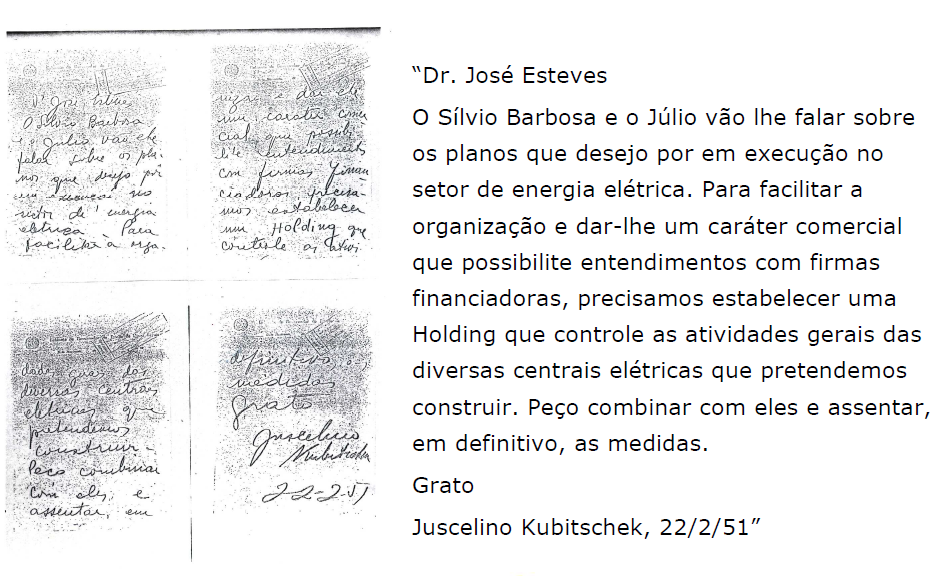 Dr José Esteves
O Silvio Barbosa
e o Julio vão lhe
falar sobre os pla-
nos que desejo por
em execução no
setor de energia
eletrica. Para
facilitar a orga-
e dar-lhe
um carater comer
cial que possibi
lite entendimentos
com firmas finan
ciadoras, precisa-
mos estabelecer
um Holding que
controle as ativi-
dades gerais das
diversas centrais
eletricas que
pretendemos
construir.
Peço combinar
com eles, e
assentar, em
definitivo, as
medidas
Grato
Juscelino
Kubitschek
22-2-51
“Dr. José Esteves
O Sílvio Barbosa e o Júlio vão lhe falar sobre
os planos que desejo por em execução no
setor de energia elétrica. Para facilitar a
organização e dar-lhe um caráter comercial
que possibilite entendimentos com firmas
financiadoras, precisamos estabelecer uma
Holding que controle as atividades gerais das
diversas centrais elétricas que pretendemos
construir. Peço combinar com eles e assentar,
em definitivo, as medidas.
Grato
Juscelino Kubitschek, 22/2/51”